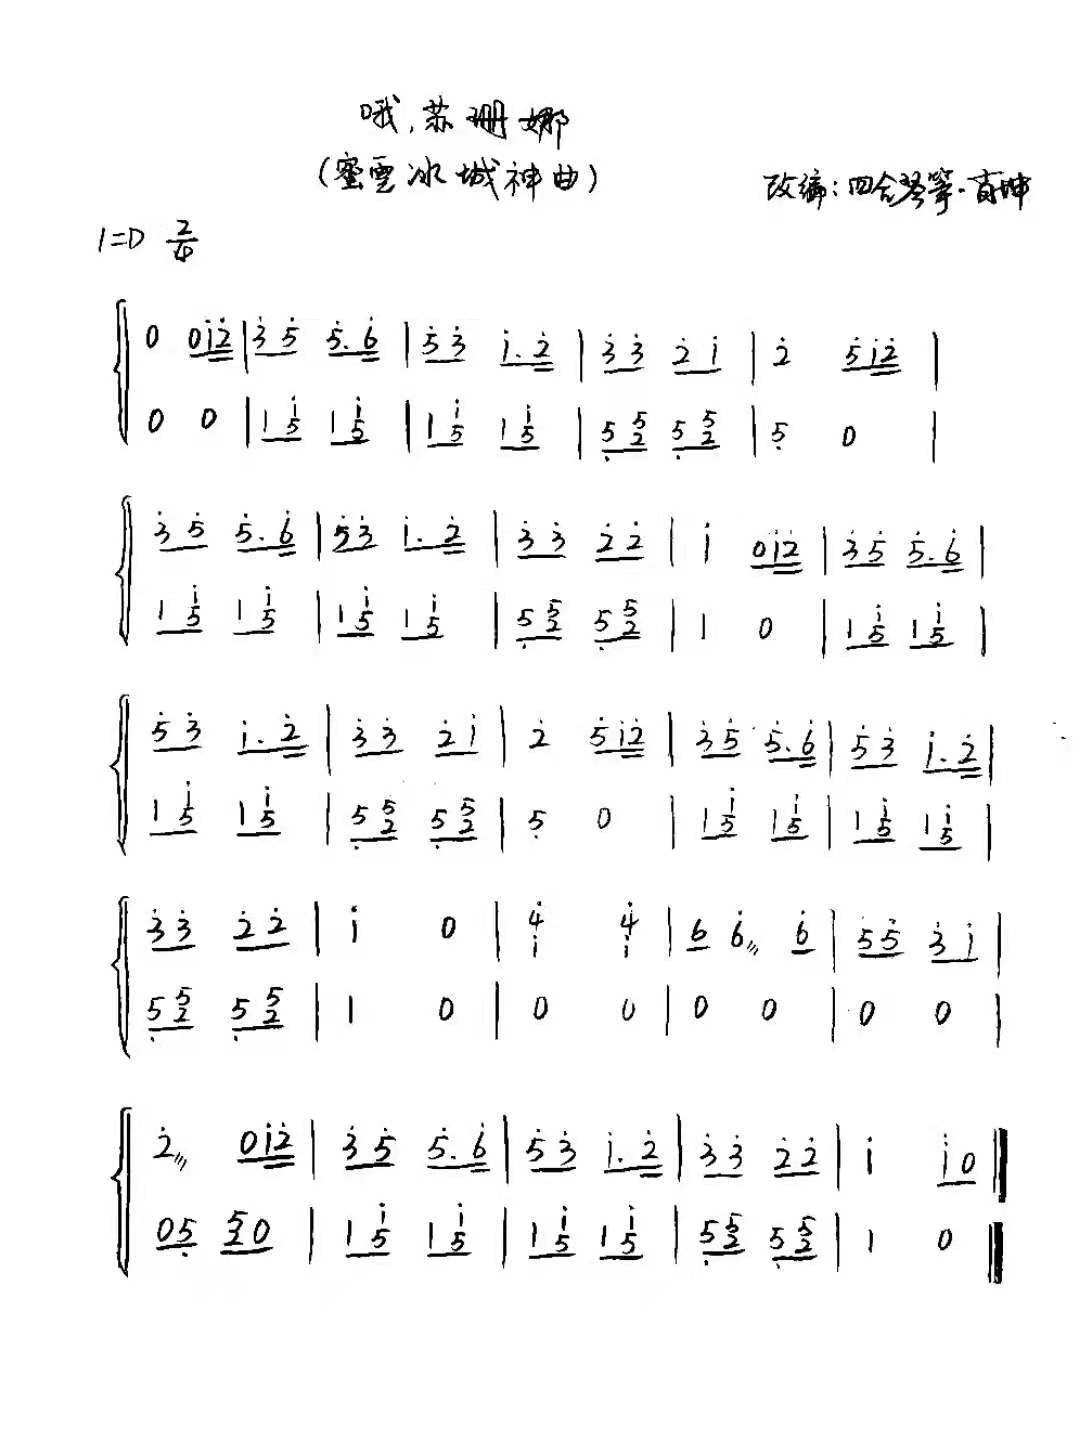 哦，苏珊娜
(蜜雪冰城神曲)
改编：四合琴筝·肖坤
1=D 2/4
0 0i̇2̇ | 3̇ 5̇ 5̇. 6̇ | 5̇ 3̇ i̇. 2̇ | 3̇ 3̇ 2̇ i̇ | 2̇ 5̇i̇2̇ |
0 0 | 1 i̇/5 1 i̇/5 | 1 i̇/5 1 i̇/5 | 5̣ 5/2 5̣ 5/2 | 5̣ 0 |
3̇ 5̇ 5̇. 6̇ | 5̇ 3̇ i̇. 2̇ | 3̇ 3̇ 2̇ 2̇ | i̇ 0i̇2̇ | 3̇ 5̇ 5̇. 6̇ |
1 i̇/5 1 i̇/5 | 1 i̇/5 1 i̇/5 | 5̣ 5/2 5̣ 5/2 | 1 0 | 1 i̇/5 1 i̇/5 |
5̇ 3̇ i̇. 2̇ | 3̇ 3̇ 2̇ i̇ | 2̇ 5̇i̇2̇ | 3̇ 5̇ 5̇. 6̇ | 5̇ 3̇ i̇. 2̇ |
1 i̇/5 1 i̇/5 | 5̣ 5/2 5̣ 5/2 | 5̣ 0 | 1 i̇/5 1 i̇/5 | 1 i̇/5 1 i̇/5 |
3̇ 3̇ 2̇ 2̇ | i̇ 0 | 4̇/i̇ 4̇/i̇ | 6 6̇ 6̇ | 5̇ 5̇ 3̇ i̇ |
5̣ 5/2 5̣ 5/2 | 1 0 | 0 0 | 0 0 | 0 0 |
2̇ 0i̇2̇ | 3̇ 5̇ 5̇. 6̇ | 5̇ 3̇ i̇. 2̇ | 3̇ 3̇ 2̇ 2̇ | i̇ i̇ 0 ‖
0 5̣ 5/2 0 | 1 i̇/5 1 i̇/5 | 1 i̇/5 1 i̇/5 | 5̣ 5/2 5̣ 5/2 | 1 0 ‖